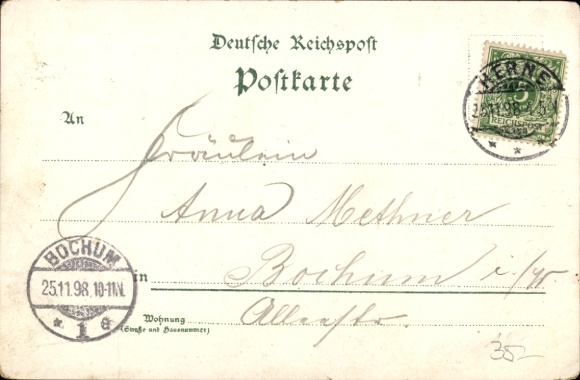 Deutsche Reichspost
Postkarte
HERNE
25.11.98
5
REICHSPOST
An
Fräulein
Anna Methner
in Bochum i/W
Wohnung
(Straße und Hausnummer)
Alleestr.
BOCHUM
25.11.98. 10-11N.
* 1 G
35-